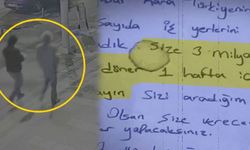 kara Türkiyenin
sayıda iş yerlerini
dık. Size 3 milya
döner 1 hafta ic
ayın Sizi aradığım
Olsan Size verece
yapacaksınız.